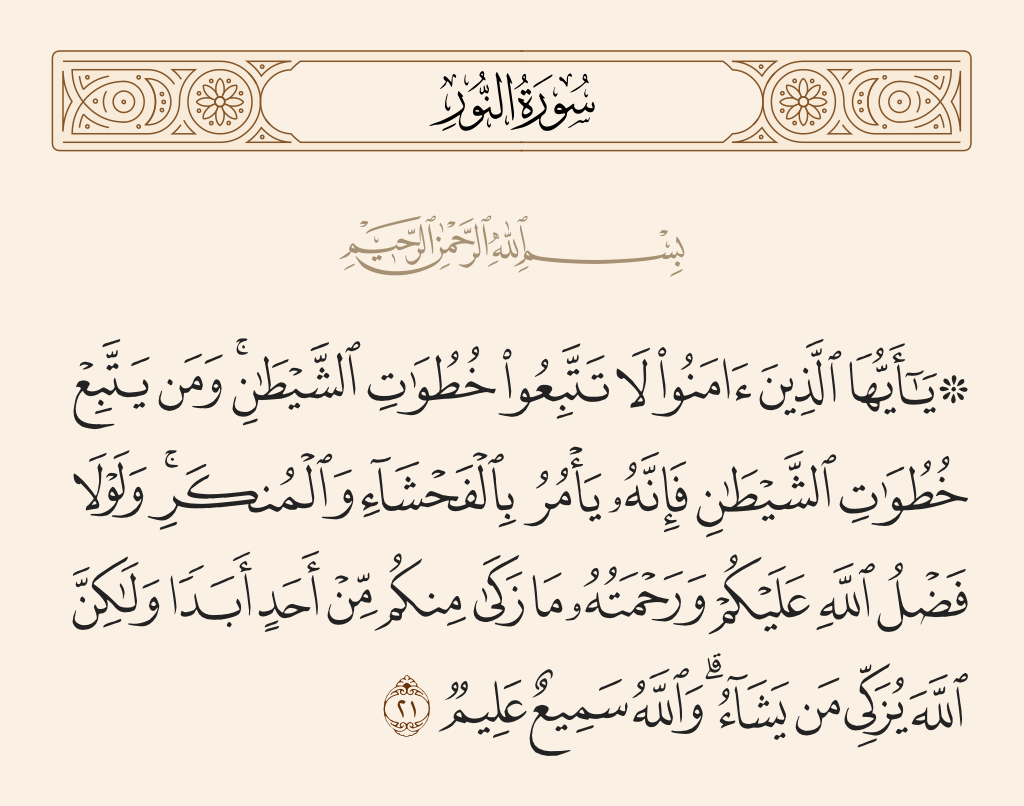 سُورَةُ النُّورِ
بِسْمِ ٱللَّهِ ٱلرَّحْمَٰنِ ٱلرَّحِيمِ
۞ يَـٰٓأَيُّهَا ٱلَّذِينَ ءَامَنُوا۟ لَا تَتَّبِعُوا۟ خُطُوَٰتِ ٱلشَّيْطَـٰنِ ۚ وَمَن يَتَّبِعْ
خُطُوَٰتِ ٱلشَّيْطَـٰنِ فَإِنَّهُۥ يَأْمُرُ بِٱلْفَحْشَآءِ وَٱلْمُنكَرِ ۚ وَلَوْلَا
فَضْلُ ٱللَّهِ عَلَيْكُمْ وَرَحْمَتُهُۥ مَا زَكَىٰ مِنكُم مِّنْ أَحَدٍ أَبَدًا وَلَـٰكِنَّ
ٱللَّهَ يُزَكِّى مَن يَشَآءُ ۗ وَٱللَّهُ سَمِيعٌ عَلِيمٌ ٢١